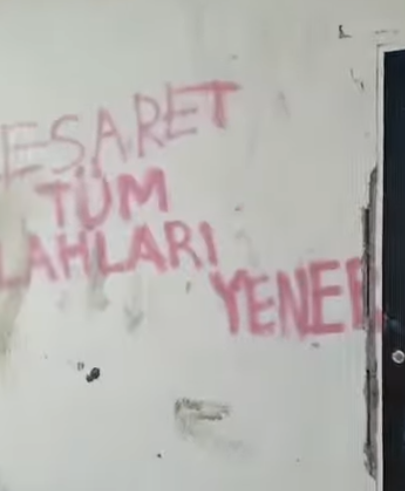 ESARET
TÜM
LAHLARI
YENER